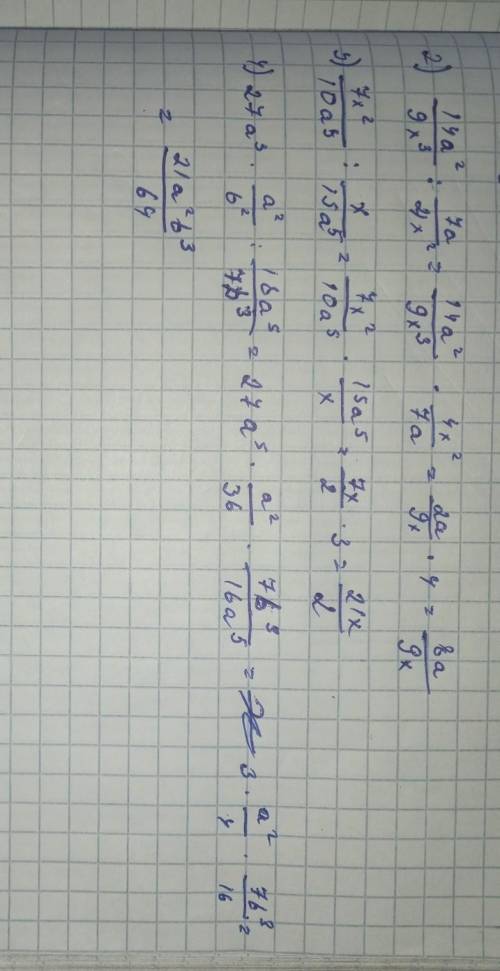 2) 14a²/9x³ : 7a/4x² = 14a²/9x³ · 4x²/7a = 2a/9x · 4 = 8a/9x
3) 7x²/10a⁵ : x/15a⁵ = 7x²/10a⁵ · 15a⁵/x = 7x/2 · 3 = 21x/2
4) 27a⁵ · a²/6² : 16a⁵/7b³ = 27a⁵ · a²/36 · 7b³/16a⁵ = 3 · a²/4 · 7b³/16 =
= 21a²b³/64